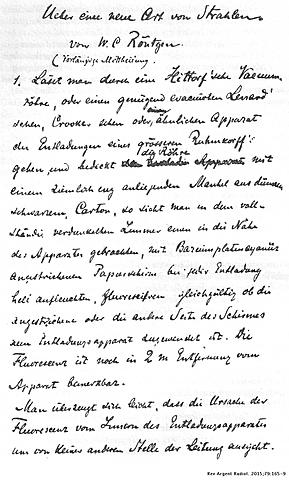 Ueber eine neue Art von Strahlen.
von W. C. Röntgen.
(Vorläufige Mittheilung.)
1. Lässt man durch eine Hittorf'sche Vacuum-
röhre, oder einen genügend evacuirten Lenard'-
schen, Crookes'schen oder ähnlichen Apparat
die Entladungen eines grösseren Ruhmkorff's
gehen und bedeckt die Röhre mit
einem ziemlich eng anliegenden Mantel aus dünnem,
schwarzem Carton, so sieht man in dem voll-
ständig verdunkelten Zimmer einen in die Nähe
des Apparates gebrachten, mit Bariumplatincyanür
angestrichenen Papierschirm bei jeder Entladung
hell aufleuchten, fluoresciren, gleichgültig ob die
angestrichene oder die andere Seite des Schirmes
dem Entladungsapparat zugewendet ist. Die
Fluorescenz ist noch in 2 m Entfernung vom
Apparat bemerkbar.
Man überzeugt sich leicht, dass die Ursache der
Fluorescenz vom Innern des Entladungsapparates
und von keiner anderen Stelle der Leitung ausgeht.
Rev Argent Radiol. 2015;79:165-9